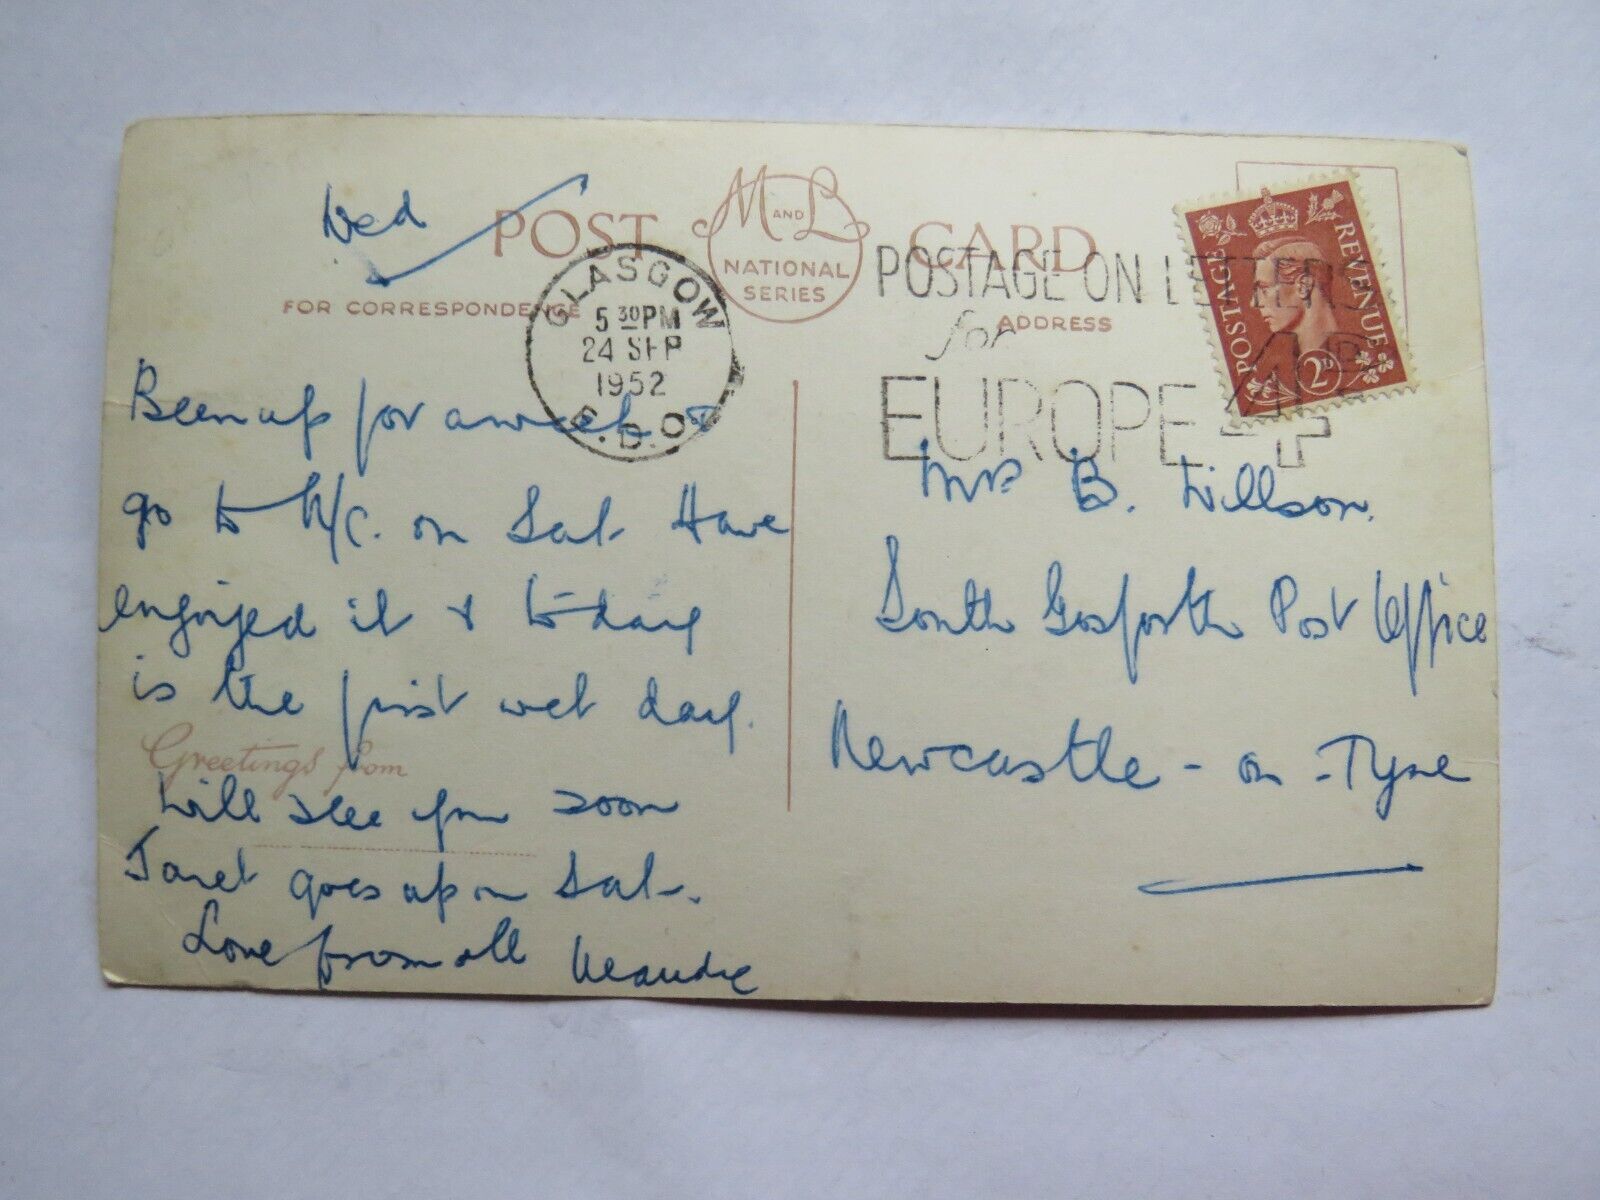 Wed
POST CARD
M AND L
NATIONAL
SERIES
FOR CORRESPONDENCE
ADDRESS
GLASGOW
5 30 PM
24 SEP
1952
E.D.O
POSTAGE ON LETTERS
for
EUROPE 4D
POSTAGE REVENUE
2D
Been up for a week &
go to N/C. on Sat. Have
enjoyed it & to-day
is the first wet day.
Greetings from
Will see you soon
Janet goes up on Sat.
Love from all Meaudie
Mrs B. Willson.
South Gosforth Post Office
Newcastle - on - Tyne